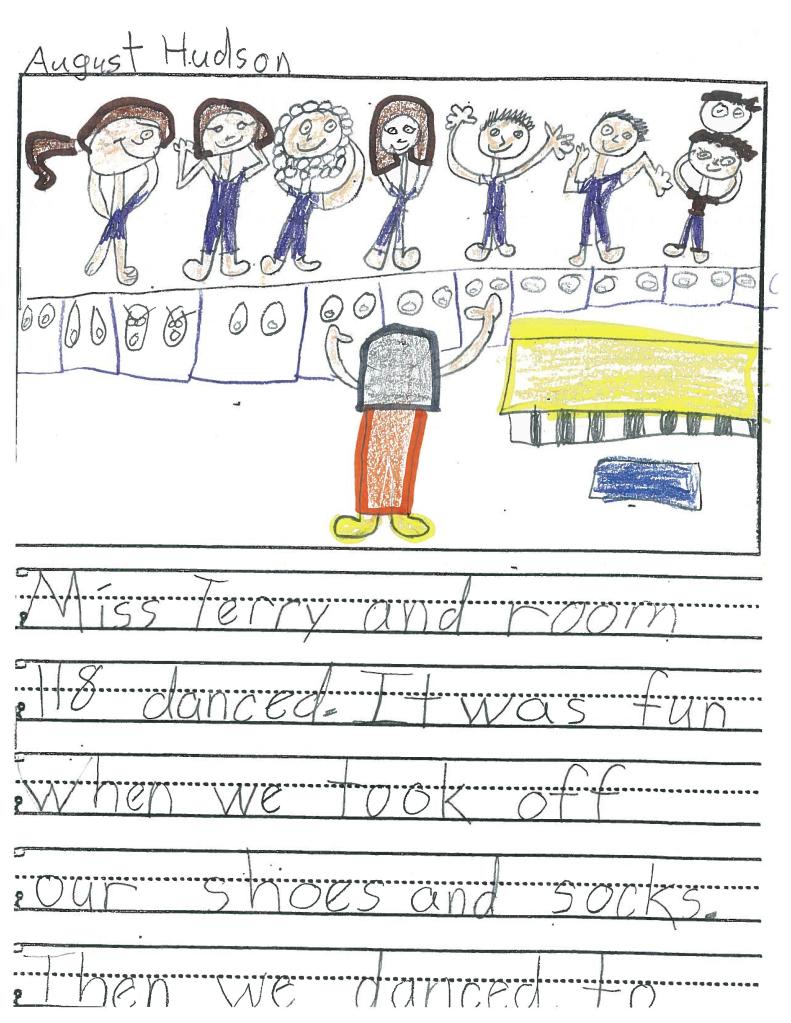 August Hudson
Miss Terry and room
118 danced. It was fun
when we took off
our shoes and socks.
Then we danced to